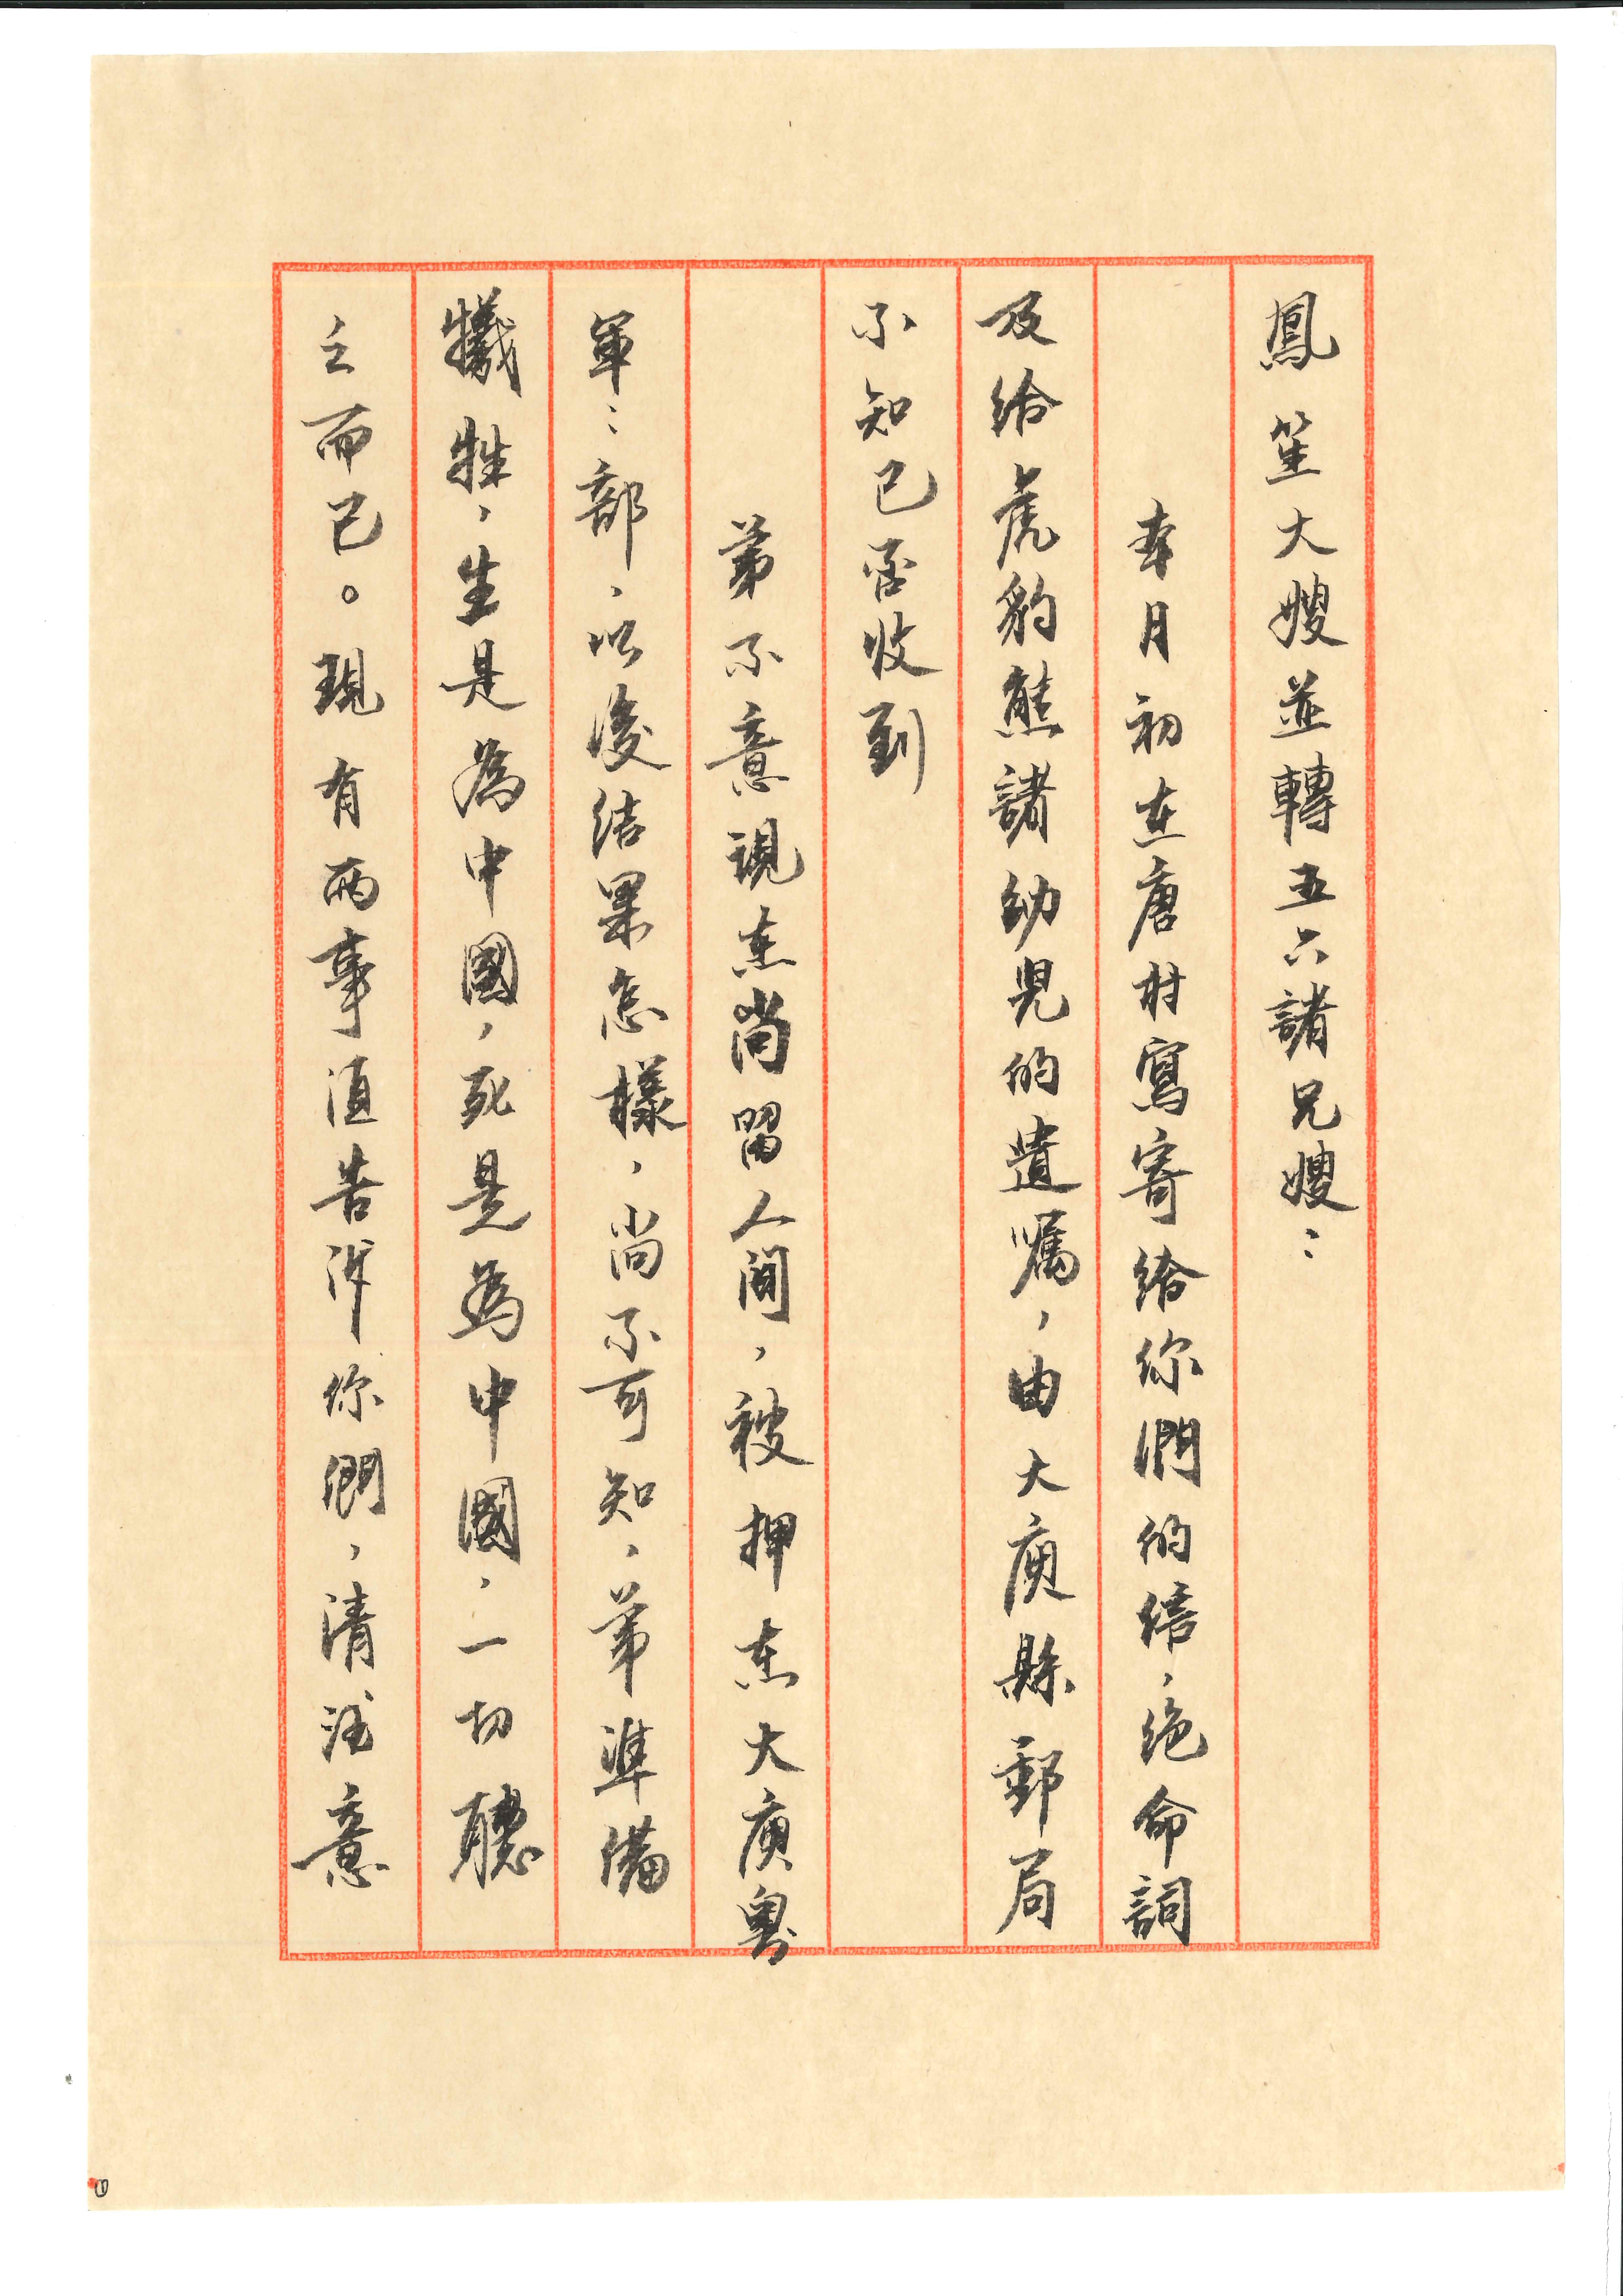 鳳笙大嫂並轉五六諸兄嫂：
本月初在唐村寫寄給你們的信，绝命詞
及给虎豹熊諸幼兒的遺嘱，由大庾縣郵局
不知已否收到
弟不意現在尚留人间，被押在大庾粤
軍：部，以後结果怎樣，尚不可知，弟準備
犧牲，生是為中國，死是為中國，一切聽
之而已。現有兩事須告訴你們，請注意
①